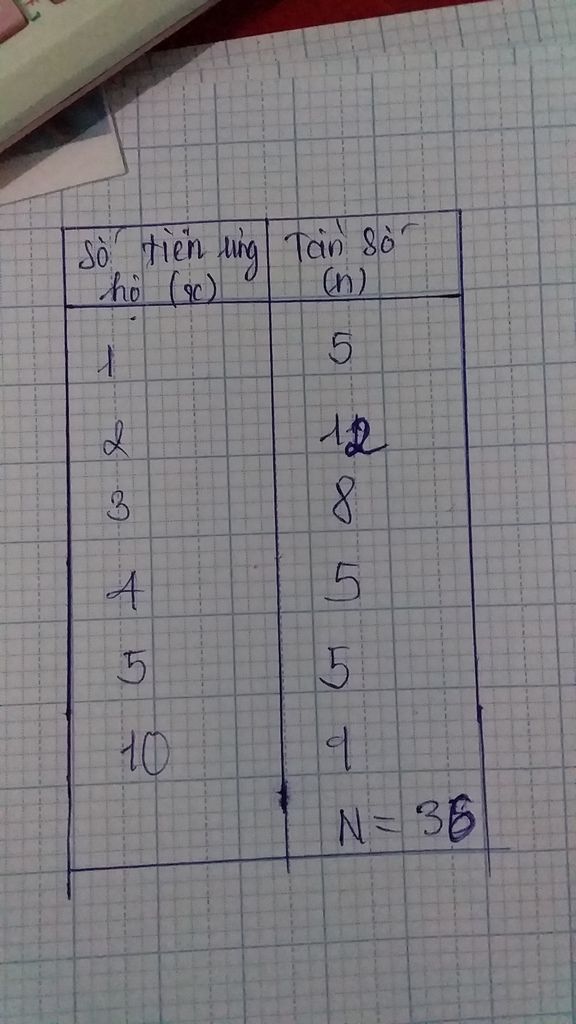 Số tiền ủng Tần số
hộ (x) (n)
1 5
2 12
3 8
4 5
5 5
10 1
N = 36